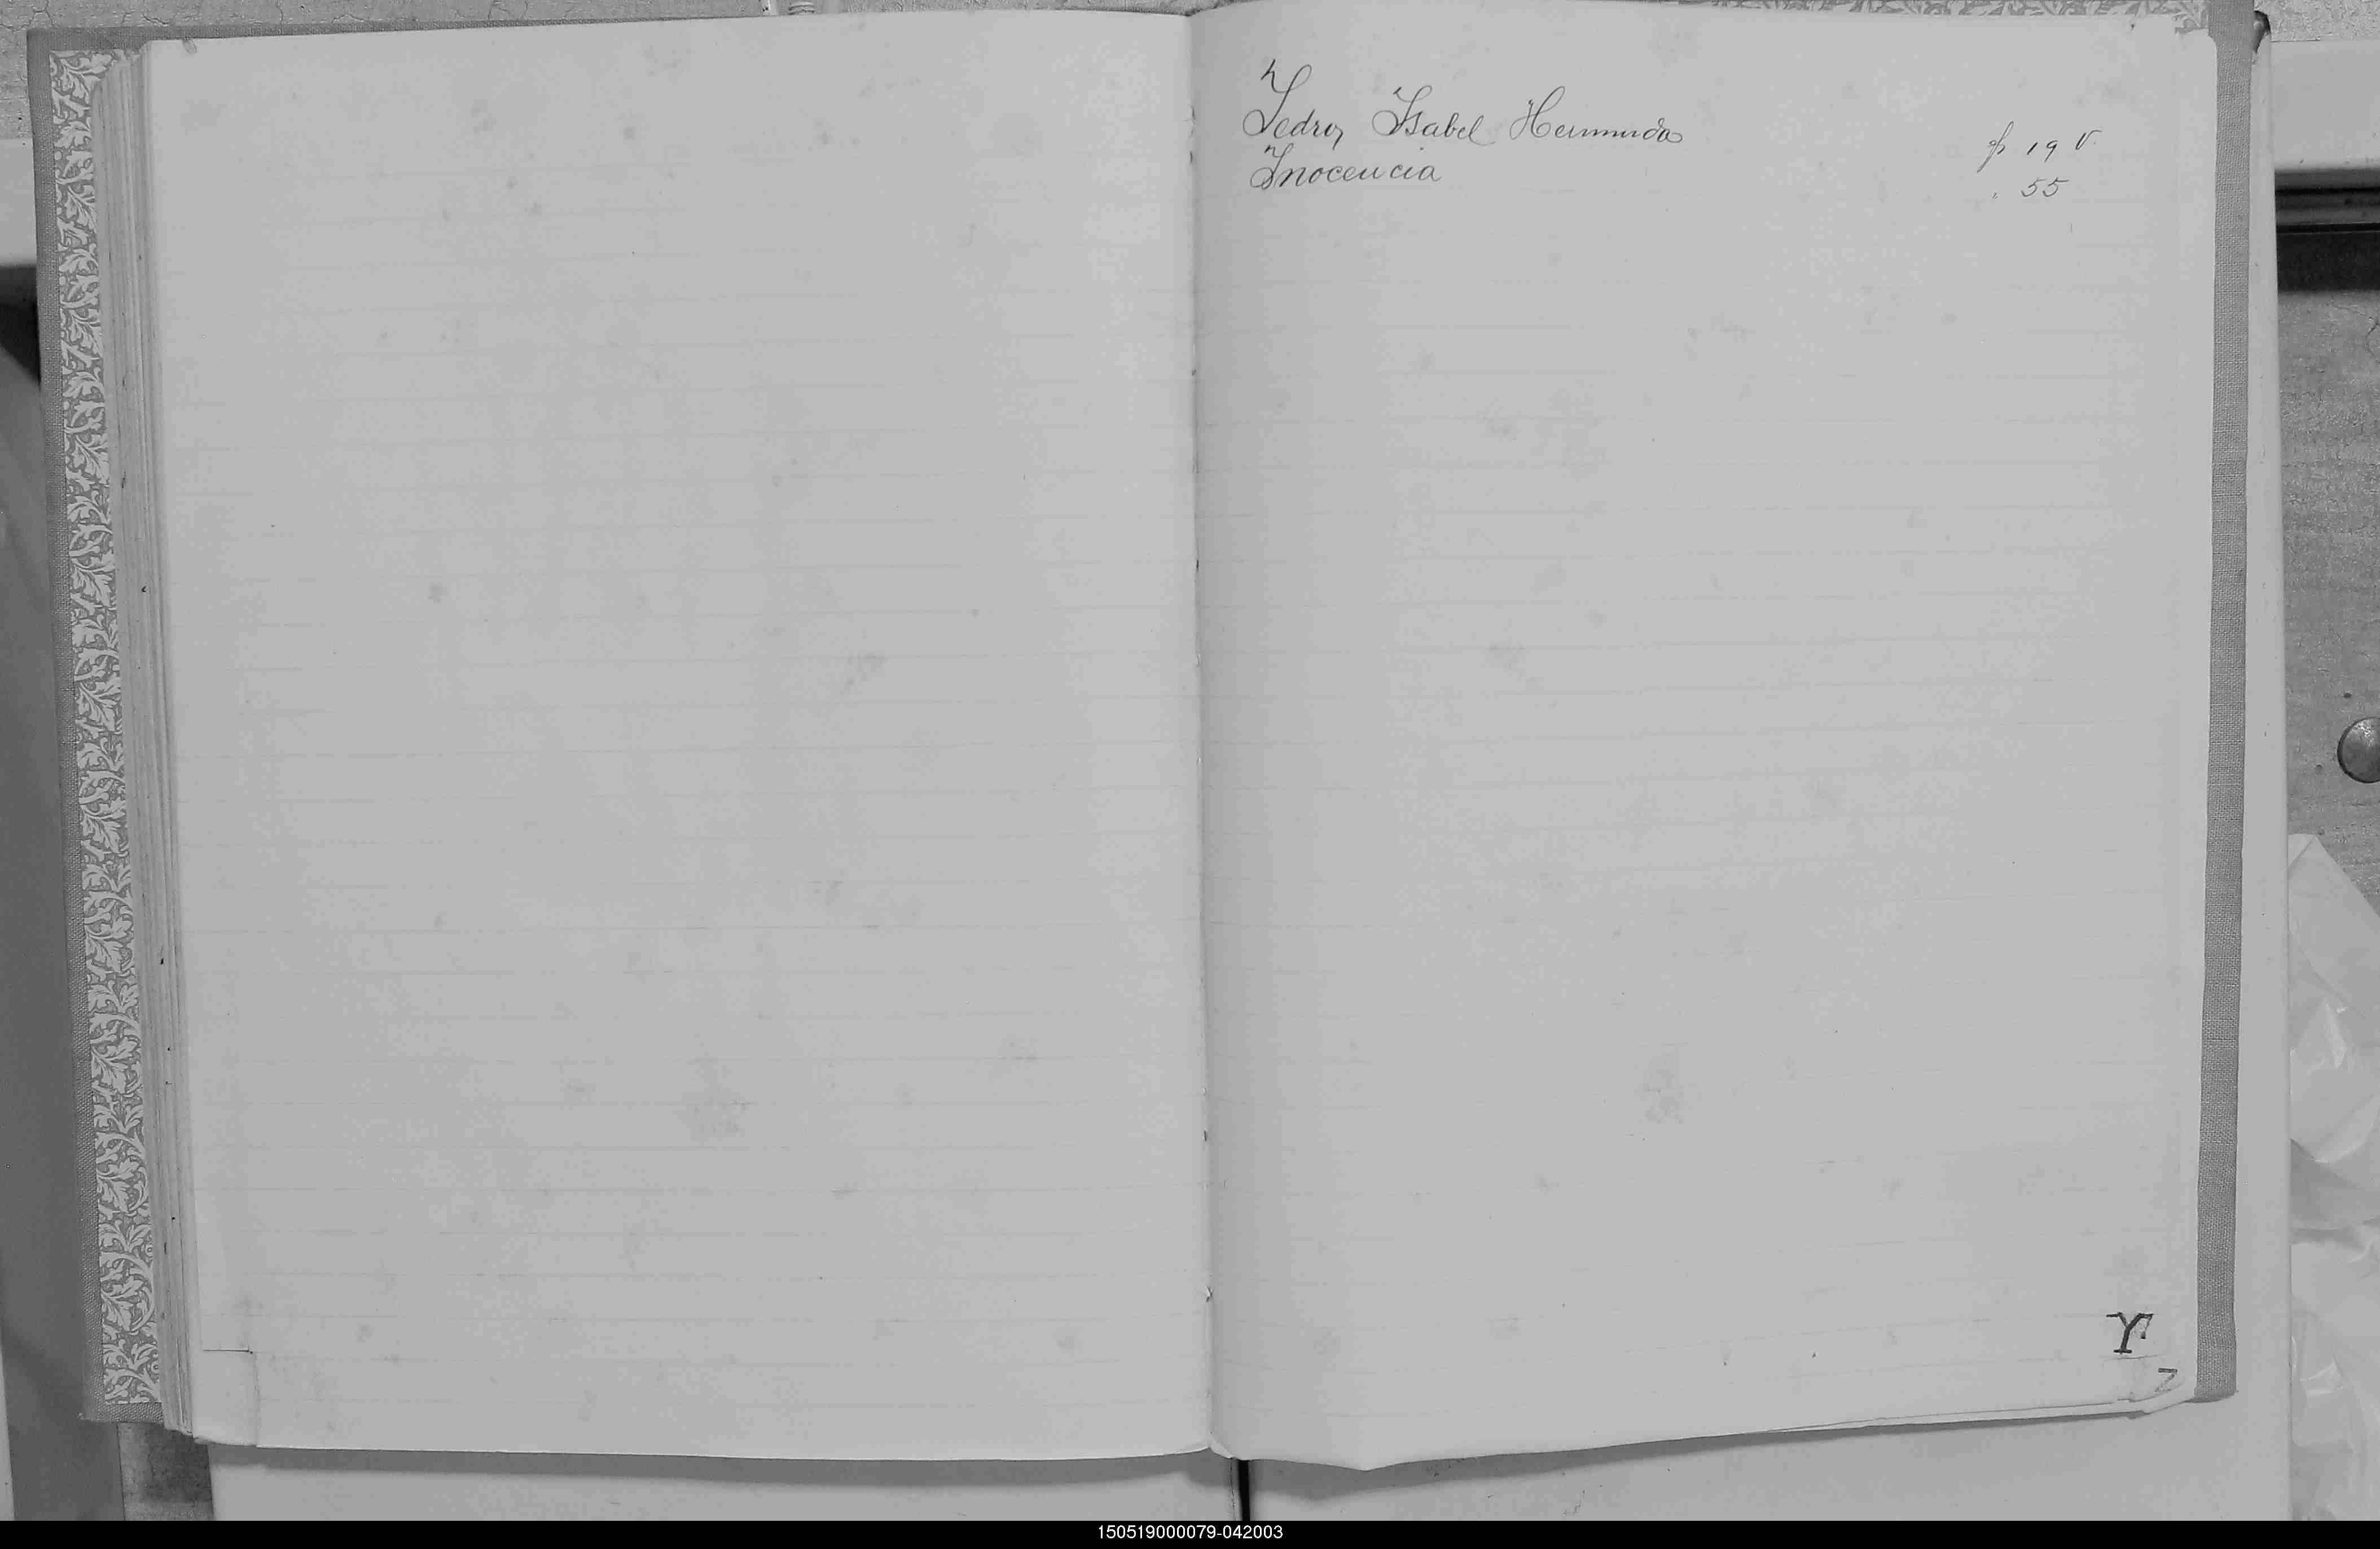 Isabel Hermuda
Inocencia
f 19 v.
. 55
Y
Z
150519000079-042003